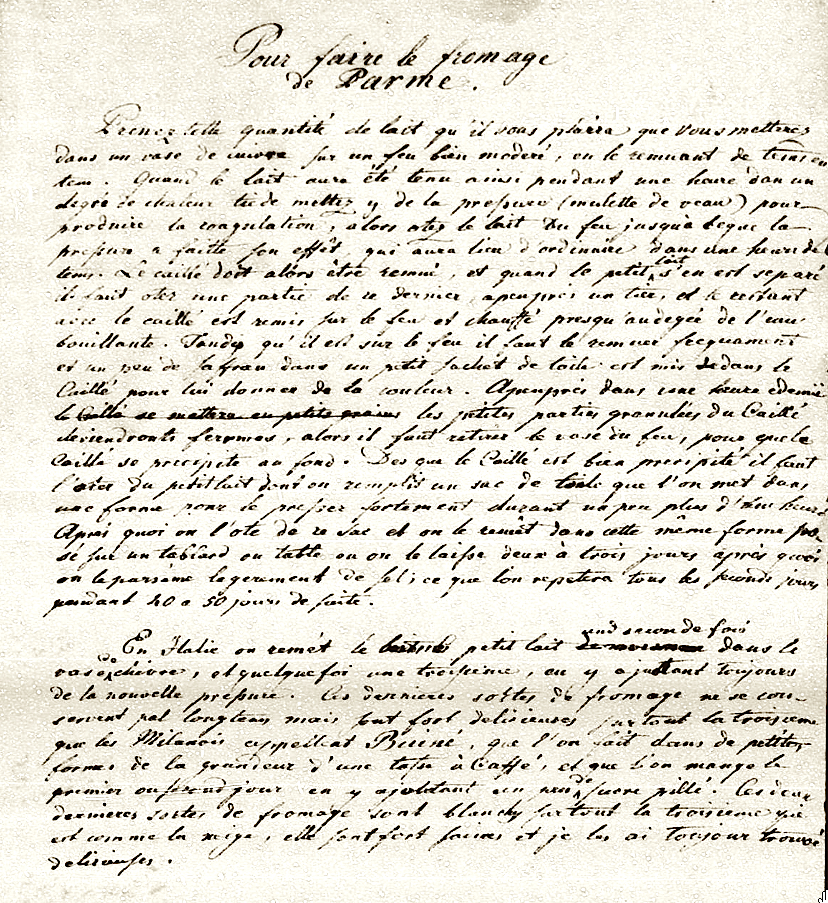 Pour faire le fromage
de Parme.
Prenez telle quantité de lait qu'il vous plaira que vous metterez
dans un vase de cuivre sur un feu bien moderé, en le remuant de tems en
tem. Quand le lait aura été tenu ainsi pendant une heure dan un
degré de chaleur tiede mettez y de la pressure (mulette de veau) pour
produire la coagulation, alors otez le lait du feu jusqu'a ceque la
pressure a faitte son effêt qui aura lieu d'ordinaire dans une heure de
tems. Le caillé doit alors être remué, et quand le petit lait s'en est separé
il faut oter une partie de ce dernier, apeuprès un tier, et le restant
avec le caillé est remis sur le feu et chauffé presqu'audegée de l'eau
bouillante. Tandis qu'il est sur le feu il faut le remuer frequament
et un peu de safran dans un petit sachet de toile est mis dedans le
Caillé pour lui donner de la couleur. Apeuprès dans une heure edemie
le Caillé se mettera en petits grains les petites parties granulées du Caillé
deviendronts fermes, alors il faut retirer le vase du feu, pour que le
Caillé se precipite au fond. Des que le Caillé est bien precipité il faut
l'oter du petit lait dont on remplit un sac de toile que l'on met dans
une forme pour le presser fortement durant un peu plus d'une heure
Après quoi on l'ote de ce sac et on le remêt dans cette même forme po-
sé sur un tableard ou table ou on le laisse deux à trois jours après quoi
on le parsème legerement de sel; ce que l'on repetera tous les seconds jours
pendant 40 a 50 jours de suite.
En Italie on remét le petit lait une seconde fois dans le
vase de cuivre, et quelquefoi une troisieme, en y ajuttant toujours
de la nouvelle pressure. Ces dernieres sortes de fromage ne se con-
servent pas longtems mais sont fort delicieuses surtout la troisieme
que les Milanois appellent, que l'on fait dans de petites
formes de la grandeur d'une tasse à Caffé, et que l'on mange le
premier ou second jour en y ajoutant un peu de sucre pillé. Ces deux
dernieres sortes de fromage sont blanchs surtout la troisieme qui
est comme la neige, elle sont fort saines et je les ai toujour trouvé
delicieuses.